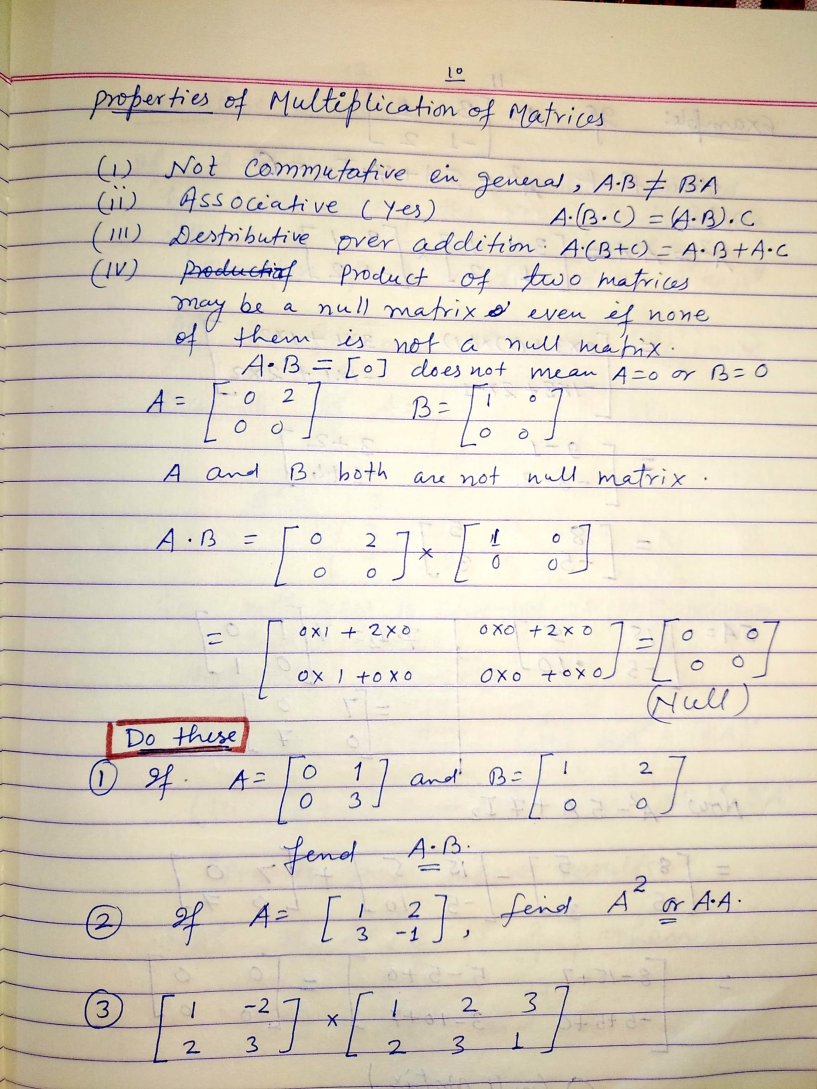 10
properties of Multiplication of Matrices
(i) Not Commutative in general, A·B ≠ B·A
(ii) Associative (Yes) A·(B·C) = (A·B)·C
(III) Distributive over addition: A·(B+C) = A·B + A·C
(IV) product of two matrices
may be a null matrix even if none
of them is not a null matrix.
A·B = [0] does not mean A=0 or B=0
A = [0 2] B = [1 0]
[0 0] [0 0]
A and B both are not null matrix.
A·B = [0 2] × [1 0]
[0 0] [0 0]
= [0×1 + 2×0 0×0 + 2×0] = [0 0]
[0×1 + 0×0 0×0 + 0×0] [0 0]
(Null)
Do these
① If A = [0 1] and B = [1 2]
[0 3] [0 0]
find A·B.
② If A = [1 2], find A² or A·A.
[3 -1]
③ [1 -2] × [1 2 3]
[2 3] [2 3 1]